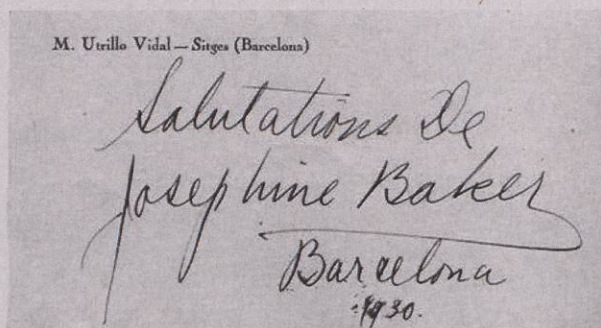 M. Utrillo Vidal — Sitges (Barcelona)
Salutations De
Josephine Baker
Barcelona
1930.